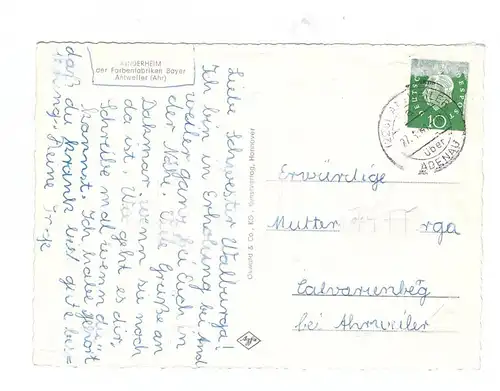 KINDERHEIM
der Farbenfabriken Bayer
Antweiler (Ahr)
Liebe Schwester Walburga!
Ich bin in Erholung bei And
weiler ganz bei Euch in
der Nähe. Viele Grüße an
Dakmar wenn sie noch
da ist. Wie geht es dir,
Schreibe mal wenn du
kannst. Ich habe gehört
daß du krank bist gute
Deine
Cramers & Co., KG., Kunstanstalt, Hannover
Agfa
DEUTSCHE BUNDESPOST
10
(22b)
über
ADENAU
Erwürdige
Mutter
Calvarienberg
bei Ahrweiler